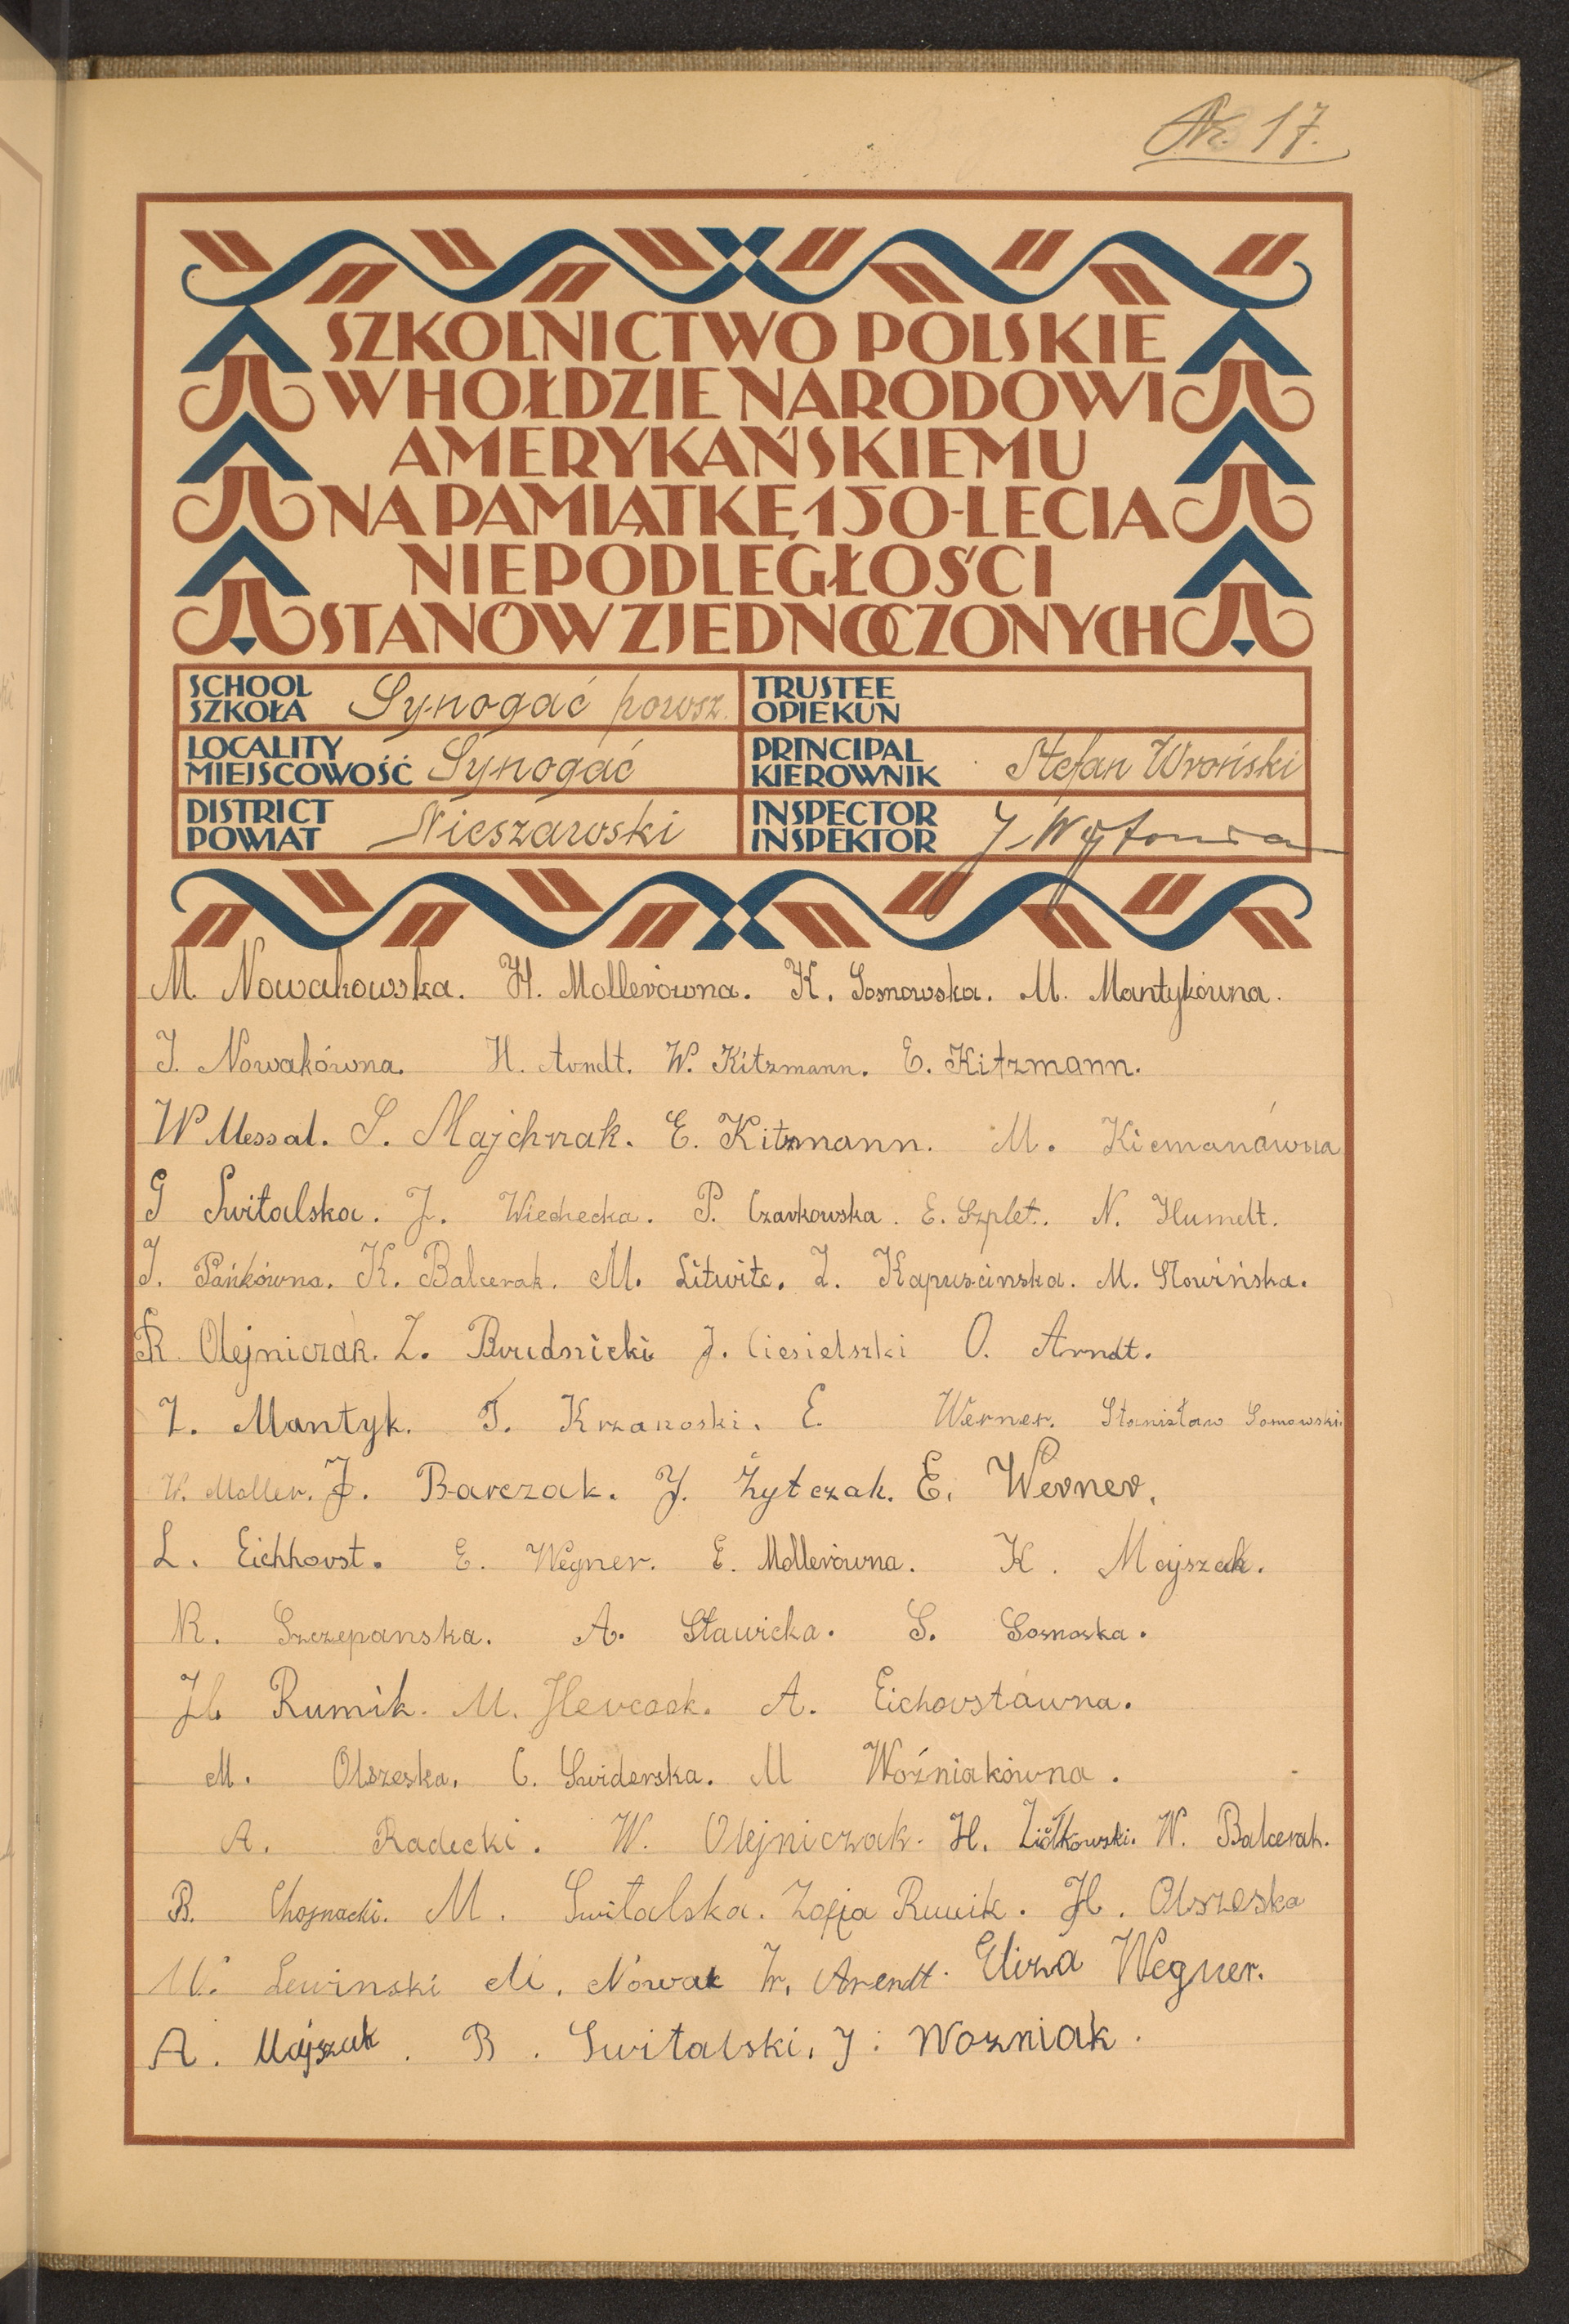 Nr. 17.
SZKOLNICTWO POLSKIE
W HOŁDZIE NARODOWI
AMERYKAŃSKIEMU
NA PAMIĄTKĘ 150-LECIA
NIEPODLEGŁOŚCI
STANÓW ZJEDNOCZONYCH
SCHOOL SZKOŁA Synogać powsz.
TRUSTEE OPIEKUN
LOCALITY MIEJSCOWOŚĆ Synogać
PRINCIPAL KIEROWNIK Stefan Wroński
DISTRICT POWIAT Nieszawski
INSPECTOR INSPEKTOR J
M. Nowakowska. H. Mollerówna. K. Sosnowska. M. Mantykówna.
J. Nowakówna. H. Arndt. W. Kitzmann. E. Kitzmann.
W Messal. S. Majchrzak. E. Kitzmann. M. Kiemanówna
G Switalska. J. Wiechecka. P. Czarkowska. E. Szplet. N. Humelt.
J. Pańkówna. K. Balcerak. M. Litwitc. Z. Kapuscinska. M. Słowińska.
R Olejniczak. Z. Brudnicki J. Ciesielszki O. Arndt.
Z. Mantyk. T. Krzanoski. E. Werner. Stanisław Sosnowski
W. Moller. J. Barczak. J. Żytczak. E. Werner.
L. Eichhorst. E. Wegner. E. Mollerówna. K. Majszak.
R. Szczepanska. A. Sławicka. S. Sosnoska.
H. Rumik. M. A. Eichorstówna.
M. Olszeska. C. Swiderska. M Woźniakówna.
A. Radecki. W. Olejniczak. H. Ziółkowski. W. Balcerak.
B. Chojnacki. M. Switalska. Zofja Rumik. H. Olszeska
W. Lewinski M. Nowak Fr. Arendt. Eliza Wegner.
A. Majszak. B. Switalski. J. Wozniak.